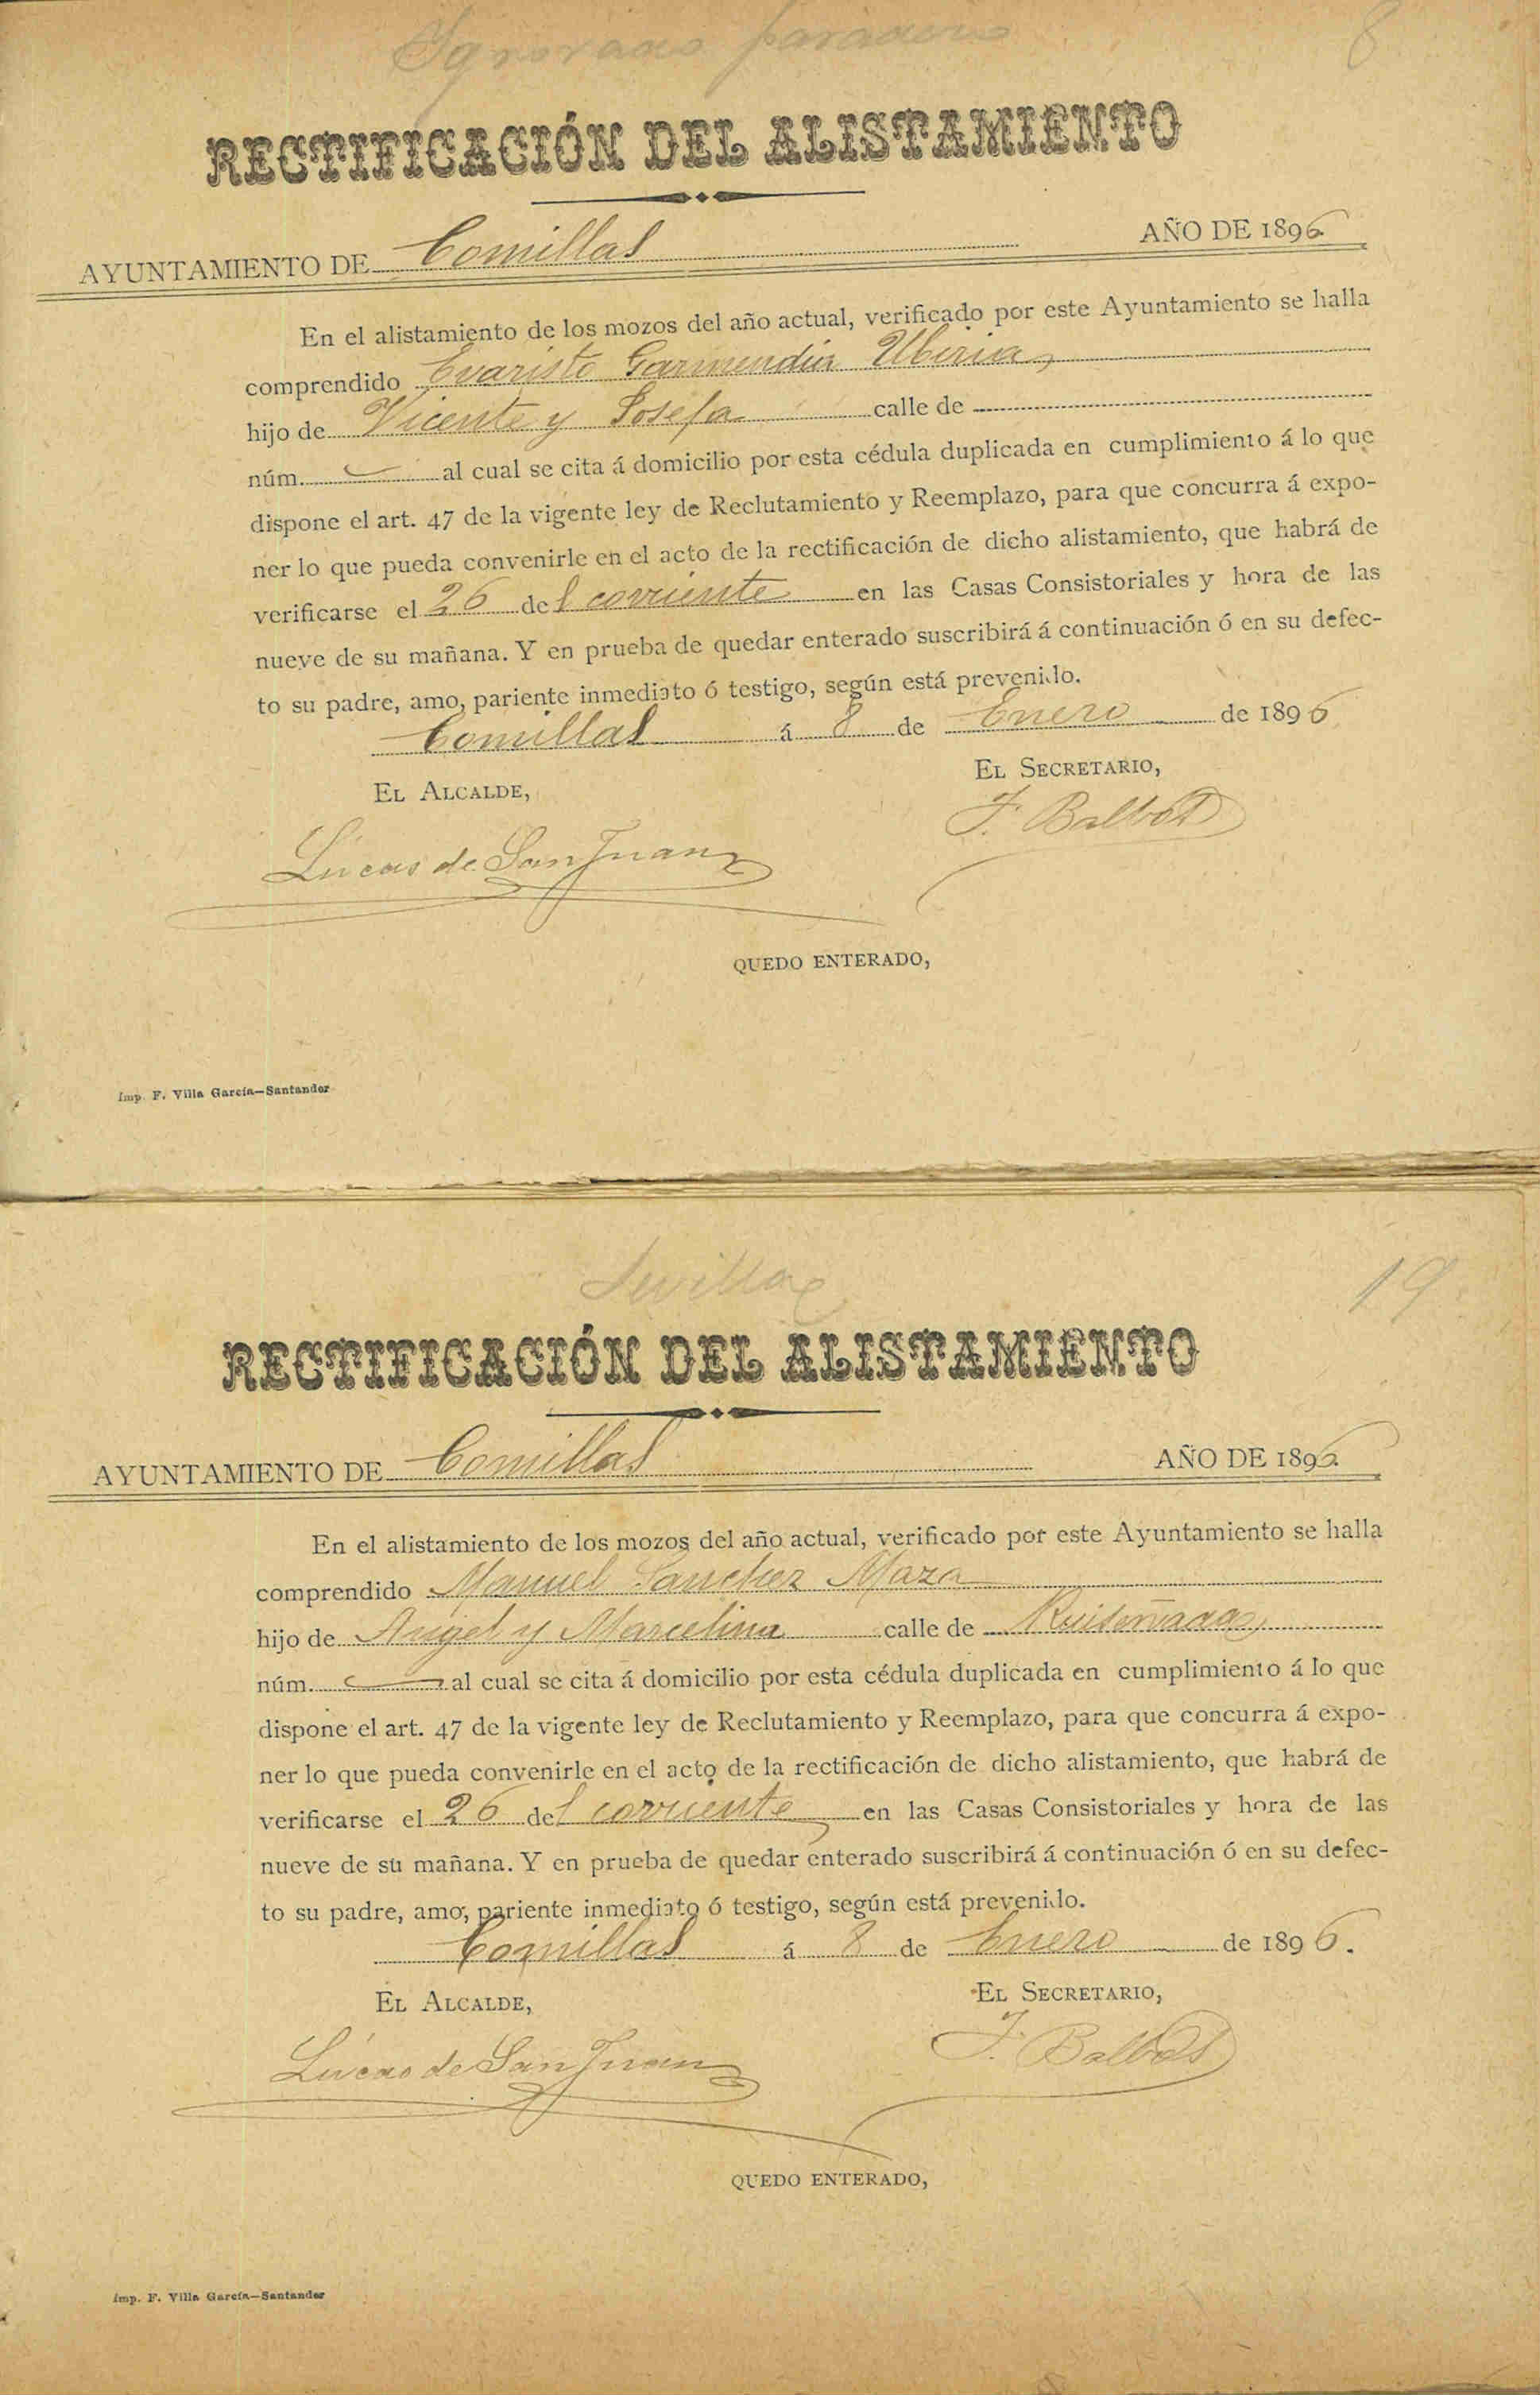 Ignorado paradero
8
RECTIFICACIÓN DEL ALISTAMIENTO
AYUNTAMIENTO DE Comillas AÑO DE 1896
En el alistamiento de los mozos del año actual, verificado por este Ayuntamiento se halla
comprendido Evaristo Garmendia Uberia
hijo de Vicente y Josefa calle de
núm. al cual se cita á domicilio por esta cédula duplicada en cumplimiento á lo que
dispone el art. 47 de la vigente ley de Reclutamiento y Reemplazo, para que concurra á expo-
ner lo que pueda convenirle en el acto de la rectificación de dicho alistamiento, que habrá de
verificarse el 26 del corriente en las Casas Consistoriales y hora de las
nueve de su mañana. Y en prueba de quedar enterado suscribirá á continuación ó en su defec-
to su padre, amo, pariente inmediato ó testigo, según está prevenido.
Comillas á 8 de Enero de 1896
EL ALCALDE, EL SECRETARIO,
Lúcas de San Juan J. Balbás
QUEDO ENTERADO,
Imp. F. Villa García—Santander
Sevilla
19
RECTIFICACIÓN DEL ALISTAMIENTO
AYUNTAMIENTO DE Comillas AÑO DE 1896
En el alistamiento de los mozos del año actual, verificado por este Ayuntamiento se halla
comprendido Manuel Sanchez Maza
hijo de Angel y Marcelina calle de Ruiseñada
núm. al cual se cita á domicilio por esta cédula duplicada en cumplimiento á lo que
dispone el art. 47 de la vigente ley de Reclutamiento y Reemplazo, para que concurra á expo-
ner lo que pueda convenirle en el acto de la rectificación de dicho alistamiento, que habrá de
verificarse el 26 del corriente en las Casas Consistoriales y hora de las
nueve de su mañana. Y en prueba de quedar enterado suscribirá á continuación ó en su defec-
to su padre, amo, pariente inmediato ó testigo, según está prevenido.
Comillas á 8 de Enero de 1896.
EL ALCALDE, EL SECRETARIO,
Lúcas de San Juan J. Balbás
QUEDO ENTERADO,
Imp. F. Villa García—Santander